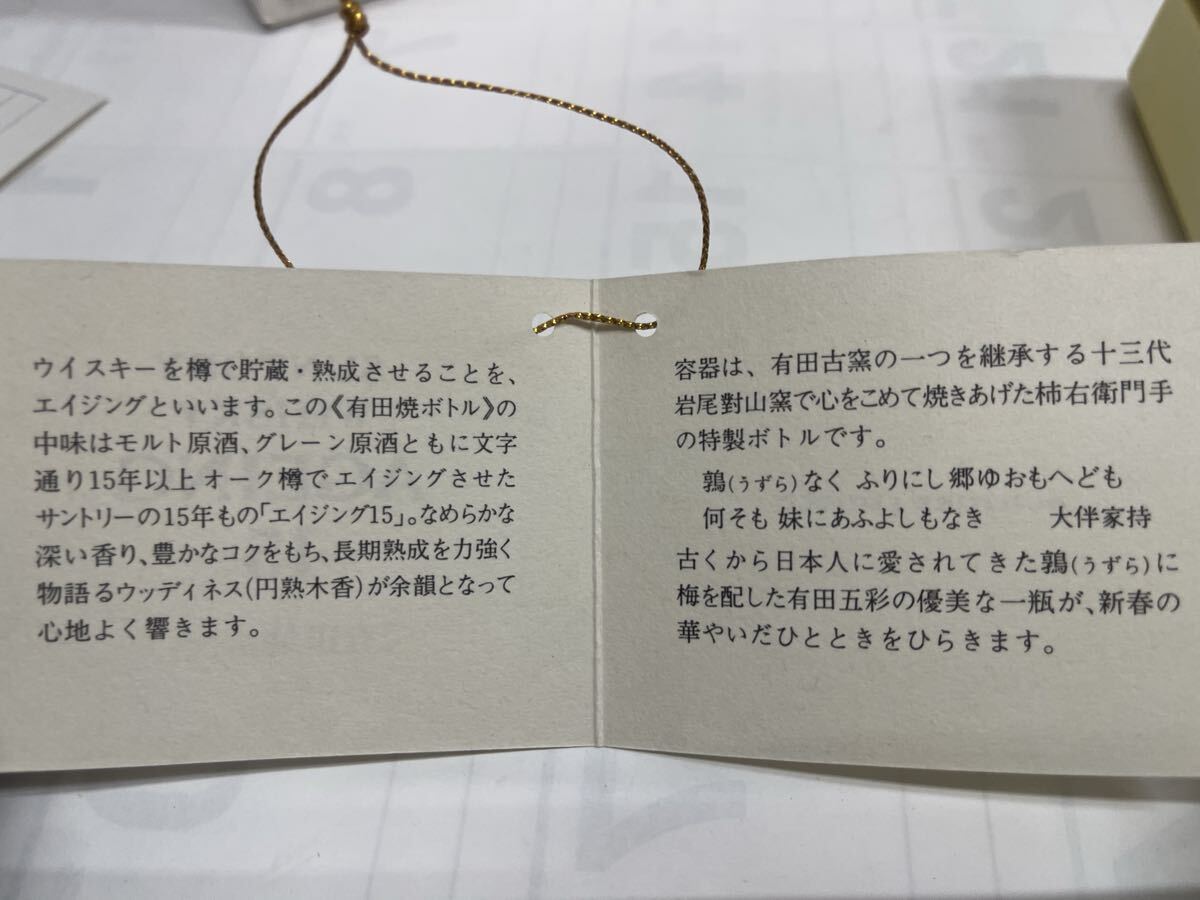 ウイスキーを樽で貯蔵・熟成させることを、
エイジングといいます。この《有田焼ボトル》の
中味はモルト原酒、グレーン原酒ともに文字
通り15年以上オーク樽でエイジングさせた
サントリーの15年もの「エイジング15」。なめらかな
深い香り、豊かなコクをもち、長期熟成を力強く
物語るウッディネス(円熟木香)が余韻となって
心地よく響きます。
容器は、有田古窯の一つを継承する十三代
岩尾對山窯で心をこめて焼きあげた柿右衛門手
の特製ボトルです。
鶉(うずら)なく ふりにし郷ゆおもへども
何そも 妹にあふよしもなき 大伴家持
古くから日本人に愛されてきた鶉(うずら)に
梅を配した有田五彩の優美な一瓶が、新春の
華やいだひとときをひらきます。
8